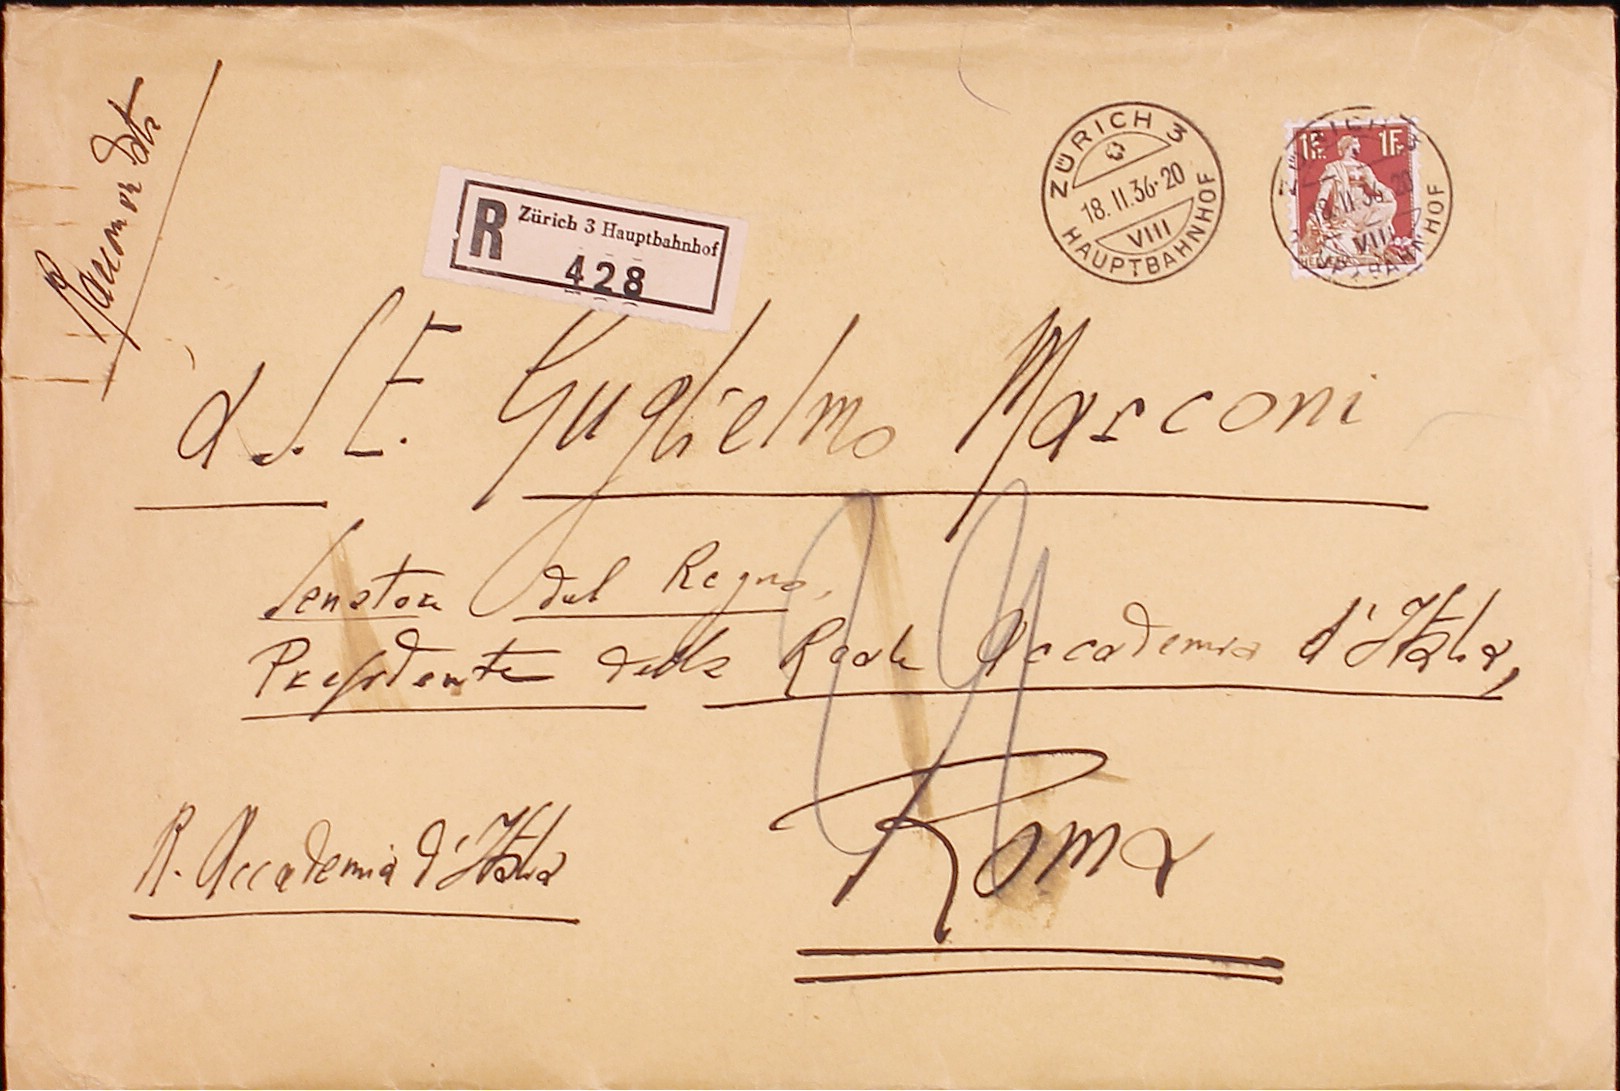 Raccomandata
R Zürich 3 Hauptbahnhof
428
ZÜRICH 3
18.II.36-20
VIII
HAUPTBAHNHOF
1Fr. 1Fr.
HELVETIA
ZÜRICH 3
18.II.36-20
VIII
HAUPTBAHNHOF
a S. E. Guglielmo Marconi
Senatore del Regno,
Presidente della Reale Accademia d'Italia,
Roma
R. Accademia d'Italia